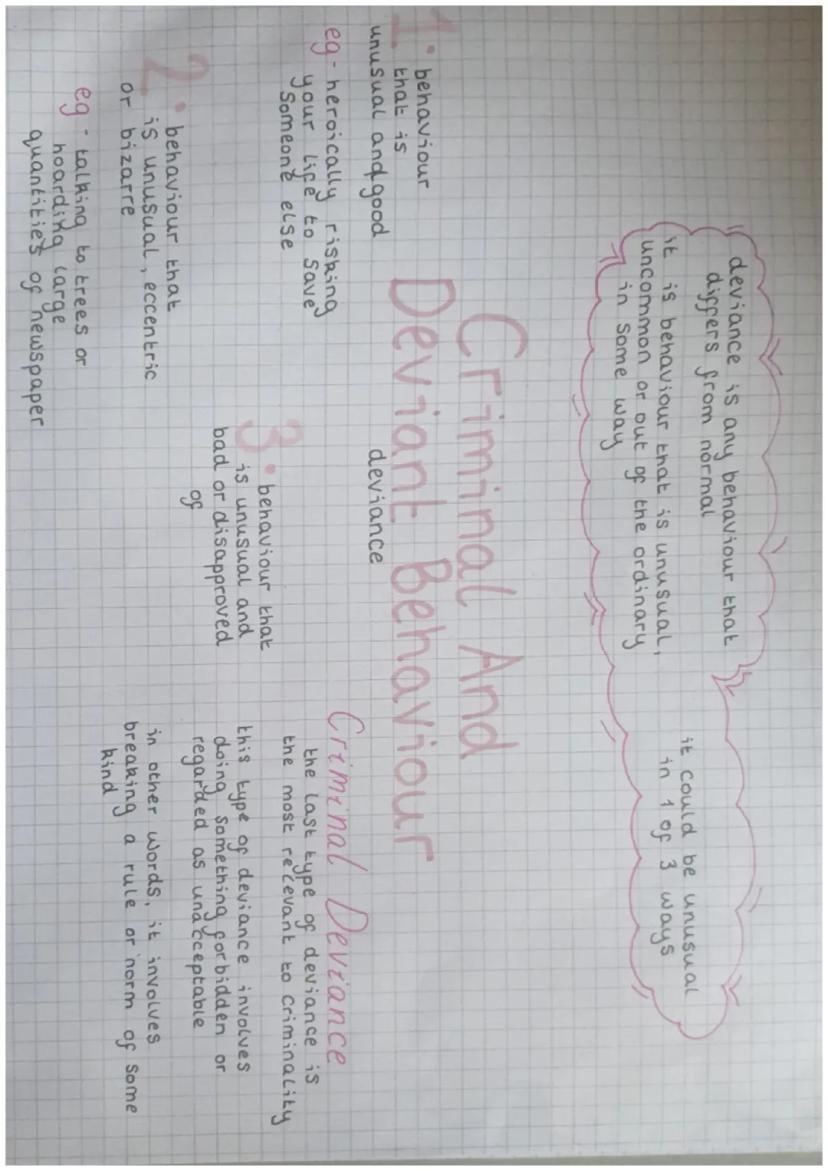 Criminal And
Deviant Behaviour
deviance
deviance is any behaviour that
differs from normal
it is behaviour that is unusual,
uncommon or out of the ordinary
in some way
it could be unusual
in 1 of 3 ways
1. behaviour
that is
unusual and good
eg - heroically risking
your life to save
someone else
2. behaviour that
is unusual, eccentric
or bizarre
eg - talking to trees or
hoarding large
quantities of newspaper
3. behaviour that
is unusual and
bad or disapproved
of
Criminal Deviance
the last type of deviance is
the most relevant to criminality
this type of deviance involves
doing something forbidden or
regarded as unacceptable
in other words, it involves
breaking a rule or norm of some
kind